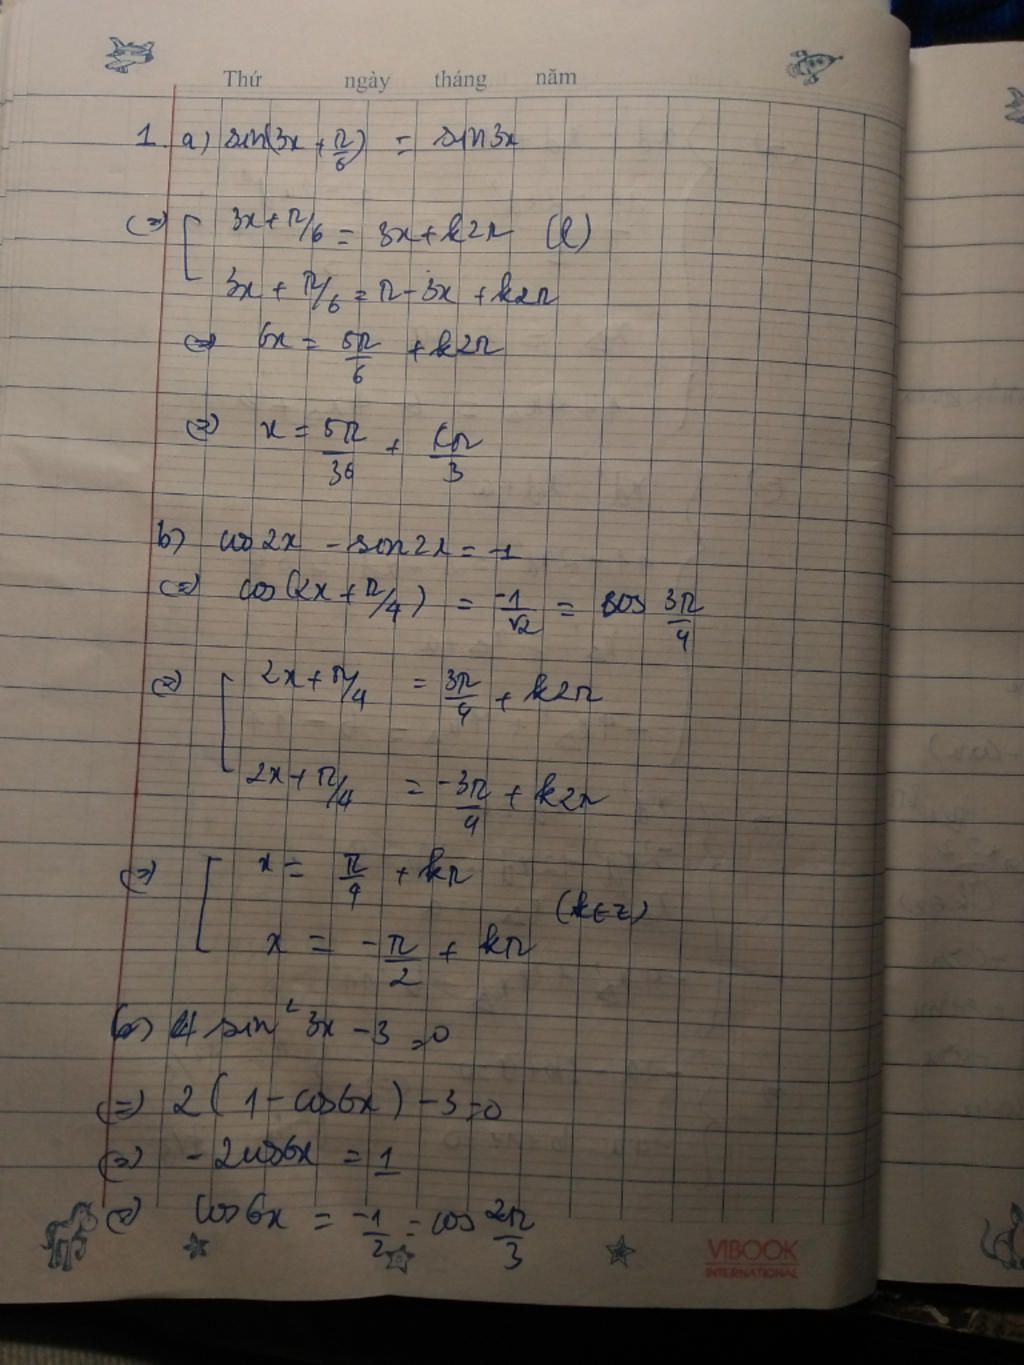 Thứ ngày tháng năm
1. a) sin(3x + π/6) = sin3x
(=) [ 3x + π/6 = 3x + k2π (l)
3x + π/6 = π - 3x + k2π
(=) 6x = 5π/6 + k2π
(=) x = 5π/36 + kπ/3
b) cos2x - sin2x = -1
(=) cos(2x + π/4) = -1/√2 = cos 3π/4
(=) [ 2x + π/4 = 3π/4 + k2π
2x + π/4 = -3π/4 + k2π
(=) [ x = π/4 + kπ
(k∈Z)
x = -π/2 + kπ
4 sin² 3x - 3 = 0
(=) 2(1 - cos6x) - 3 = 0
(=) -2cos6x = 1
(=) cos6x = -1/2 = cos 2π/3
VIBOOK
INTERNATIONAL